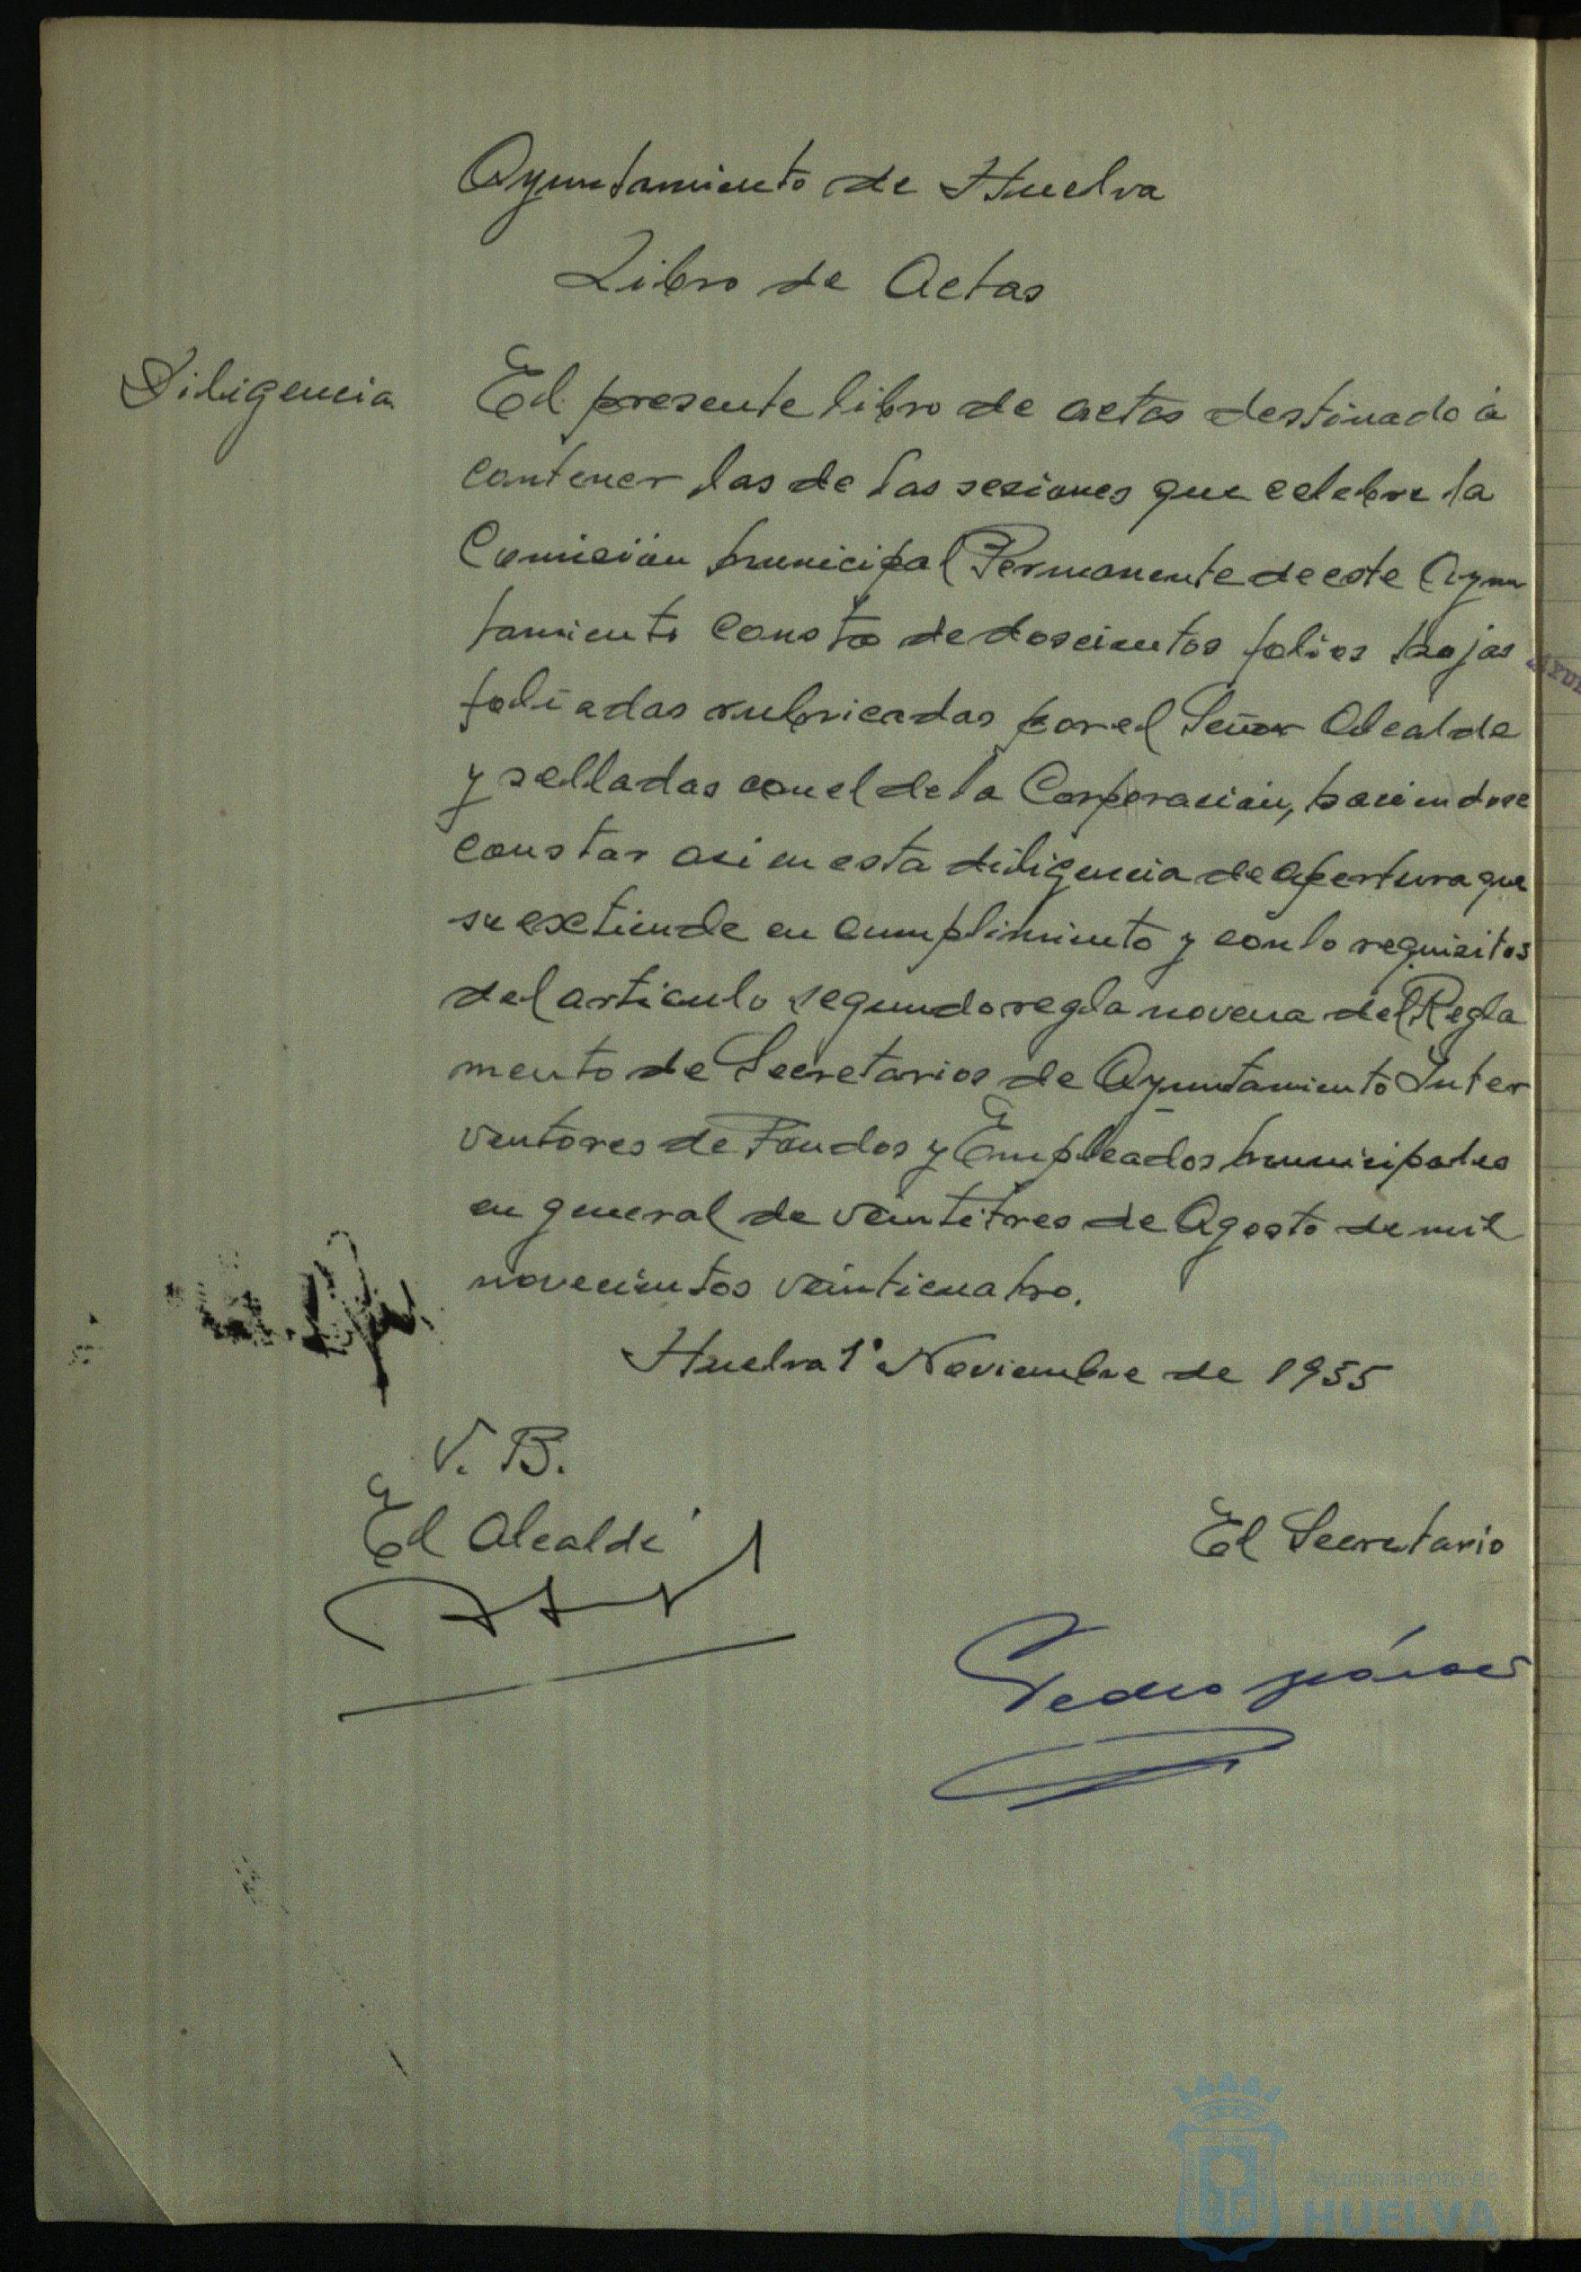 Ayuntamiento de Huelva
Libro de Actas
Diligencia
El presente libro de actas destinado á
contener las de las sesiones que celebre la
Comisión municipal Permanente de este Ayun
tamiento consta de doscientos folios hojas
foliadas rubricadas por el Señor Alcalde
y selladas con el de la Corporación, haciendose
constar asi en esta diligencia de apertura que
se extiende en cumplimiento y con lo requisitos
del articulo segundo regla novena del Regla
mento de Secretarios de Ayuntamiento Inter
ventores de Fondos y Empleados municipales
en general de veintitres de Agosto de mil
novecientos veinticuatro.
Huelva 1º Noviembre de 1955
V. B.
El Alcalde
El Secretario
Pedro
Ayuntamiento de
HUELVA